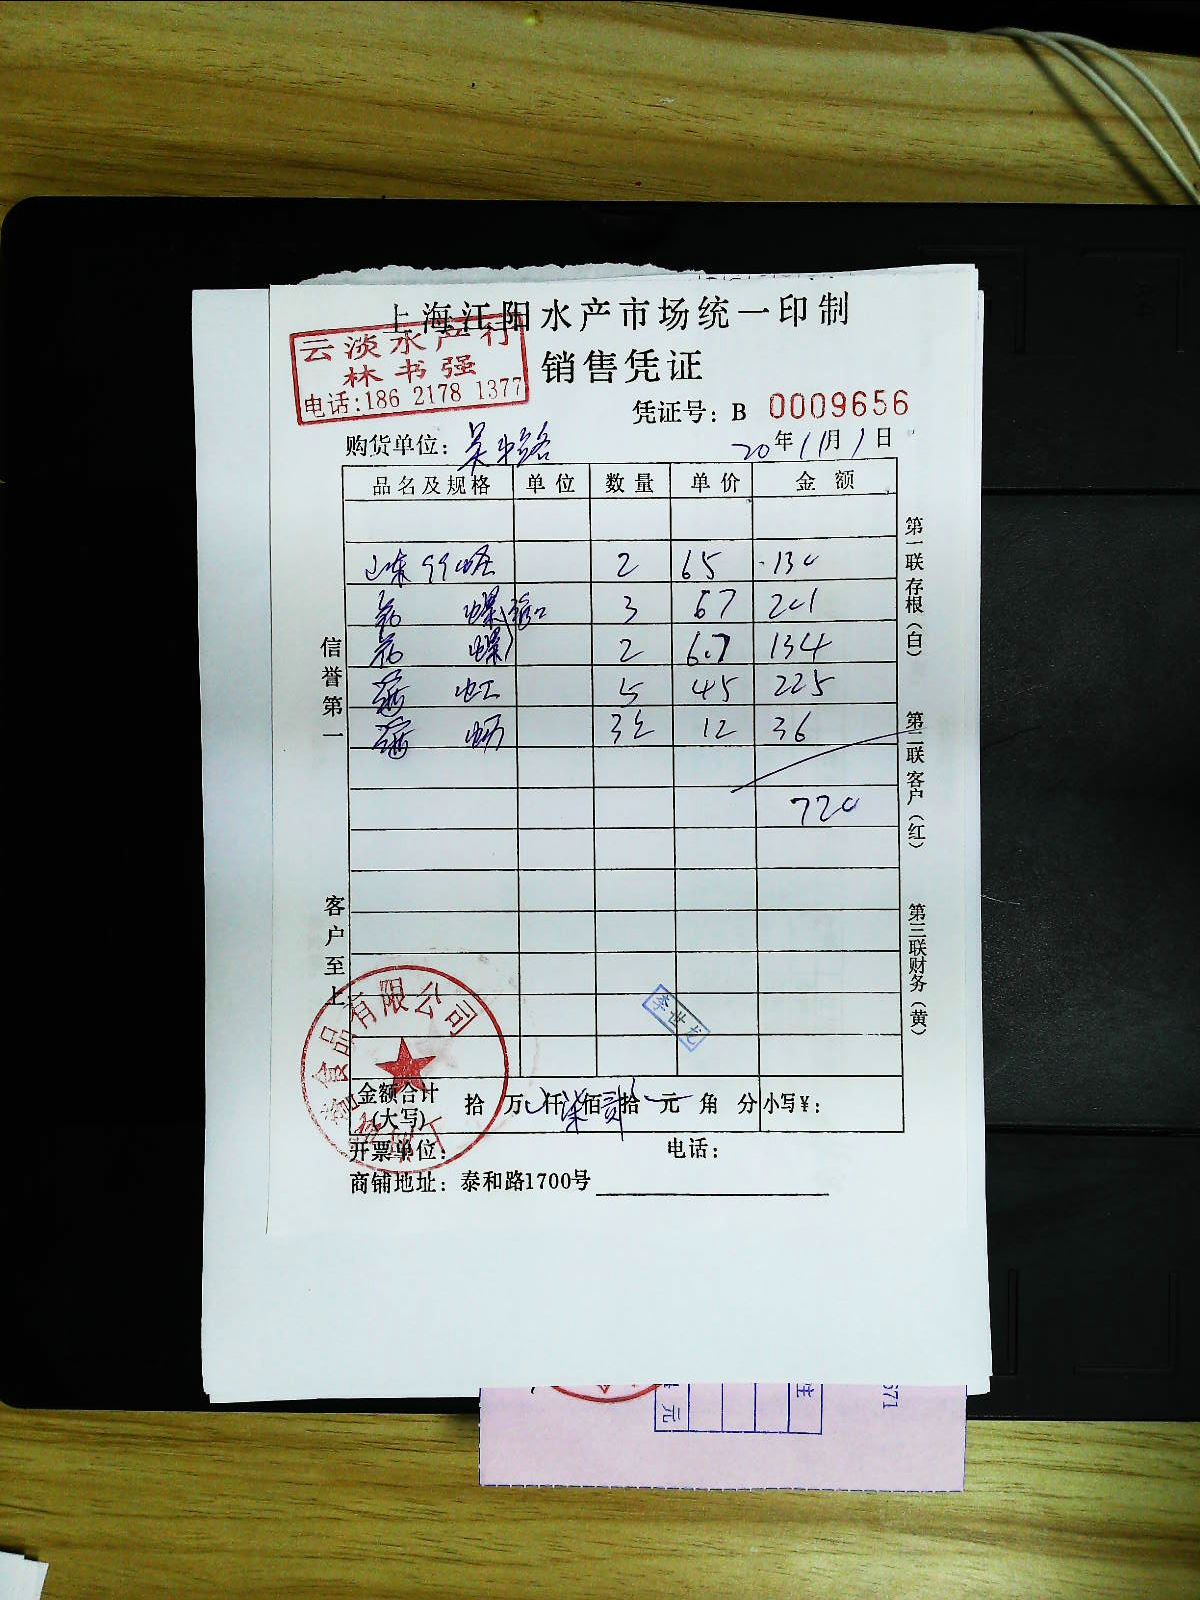 上海江阳水产市场统一印制
云淡水产行
林书强
电话:186 2178 1377
销售凭证
凭证号: B 0009656
购货单位: 吴中路
20年11月1日
品名及规格 单位 数量 单价 金额
山东99 2 65 130
螺 3 67 201
螺 2 67 134
虹 5 45 225
蛎 3 12 36
720
信誉第一
客户至上
第一联存根(白)
第二联客户(红)
第三联财务(黄)
食品有限公司
李世龙
金额合计
(大写)
拾 万 仟 柒 佰 贰 拾 元 角 分 小写¥:
开票单位: 电话:
商铺地址: 泰和路1700号
元
671